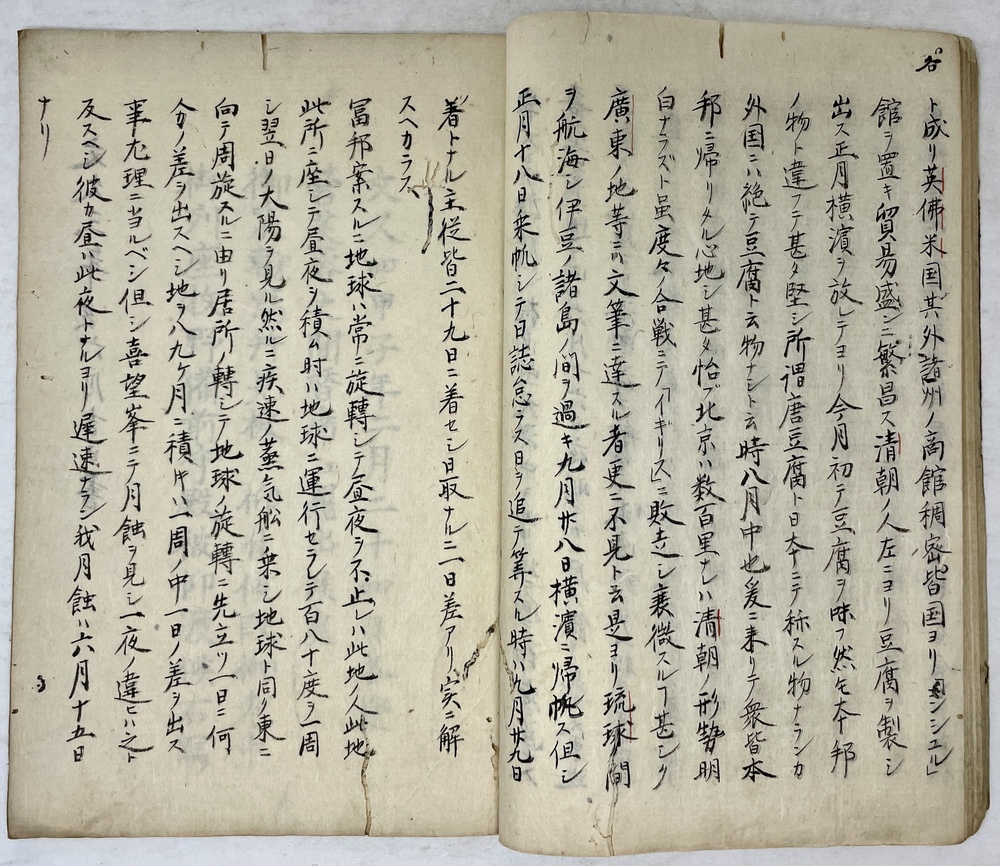 ト成リ英佛米国其外諸州ノ商館稠密皆国ヨリ「コンシユル」
館ヲ置キ貿易盛ニ繁昌ス清朝ノ人左ニヨリ豆腐ヲ製シ
出ス正月横濱ヲ放レテヨリ今月初テ豆腐ヲ味フ然モ本邦
ノ物ト違フテ甚タ堅シ所謂唐豆腐ト日本ニテ称スル物ナランカ
外国ニハ絶テ豆腐ト云物ナシト云時八月中也爰ニ来リテ衆皆本
邦ニ帰リタル心地シ甚タ怡ブ北京ハ数百里ナレハ清朝ノ形勢明
白ナラズト虽度々ノ合戦ニテ「イキリス」ニ敗走シ衰微スルヿ甚シク
廣東ノ地等ニハ文筆ニ達スル者更ニ不見ト云是ヨリ琉球ノ間
ヲ航海シ伊豆ノ諸島ノ間ヲ過キ九月廿八日横濱ニ帰帆ス但シ
正月十八日乗帆シテ日誌怠ラス日ヲ追テ筭スル時ハ九月廿九日
着トナル主従皆二十九日ニ着セシ日取ナルニ一日差アリ実ニ解
スヘカラス
冨邦案スルニ地球ハ常ニ旋轉シテ昼夜ヲ不止レハ此地ノ人此地
此所ニ座シテ昼夜ヲ積ム时ハ地球ニ運行セラレテ百八十度ヲ一周
シ翌日ノ大陽ヲ見ル然ルニ疾速ノ蒸気舩ニ乗シ地球ト同ク東ニ
向テ周旋スルニ由リ居所ノ轉シテ地球ノ旋轉ニ先立リ一日ニ何
分カノ差ヲ出スヘシ地ヲ八九ケ月ニ積サハ一周ノ中一日ノ差ヲ出ス
事尤理ニ当ルベシ但シ喜望峯ニテ月蝕ヲ見シ一夜ノ違ヒハ之ト
反スヘシ彼カ昼ハ此夜トナルヨリ遅速ナラン我月蝕ハ六月十五日
ナリ